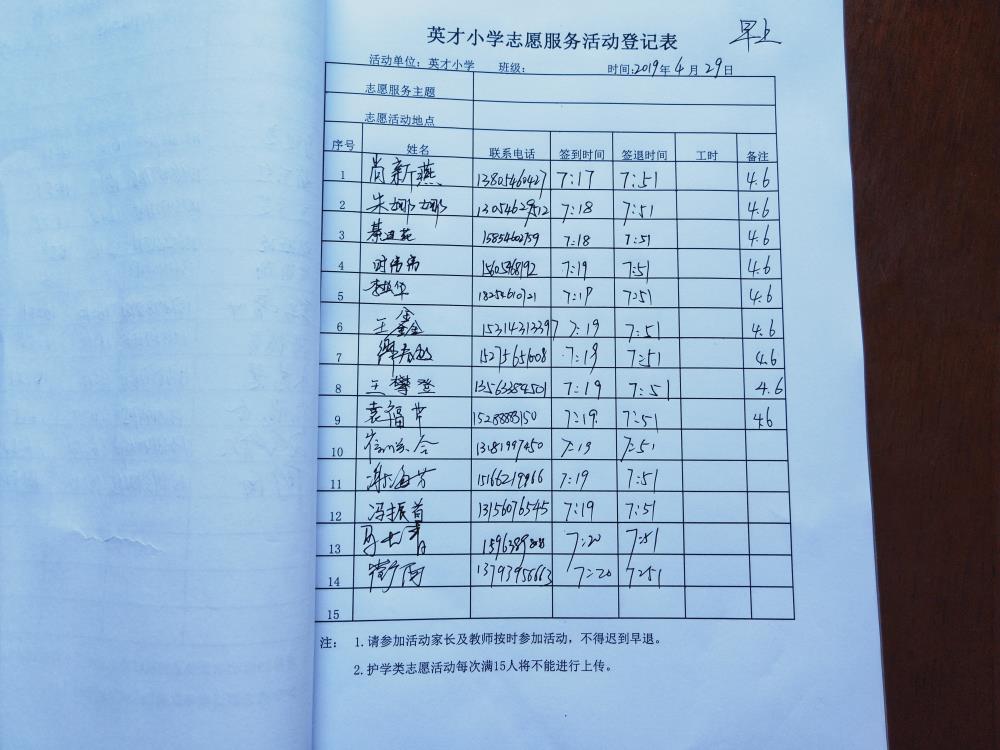 早上
英才小学志愿服务活动登记表
活动单位：英才小学 班级： 时间：2019年4月29日
志愿服务主题
志愿活动地点
序号 姓名 联系电话 签到时间 签退时间 工时 备注
1 尚新燕 13805460427 7:17 7:51 4.6
2 朱娜娜 13054629512 7:18 7:51 4.6
3 7:18 7:51 4.6
4 时伟伟 15605468192 7:19 7:51 4.6
5 18254610721 7:19 7:51 4.6
6 王鑫 15314313397 7:19 7:51 4.6
7 15275651608 7:19 7:51 4.6
8 王攀登 13563384501 7:19 7:51 4.6
9 袁福芹 15288883150 7:19 7:51 4.6
10 13181997450 7:19 7:51
11 谢海芳 7:19 7:51
12 冯振首 13156076545 7:19 7:51
13 7:20 7:51
14 13793956663 7:20 7:51
15
注： 1.请参加活动家长及教师按时参加活动，不得迟到早退。
2.护学类志愿活动每次满15人将不能进行上传。